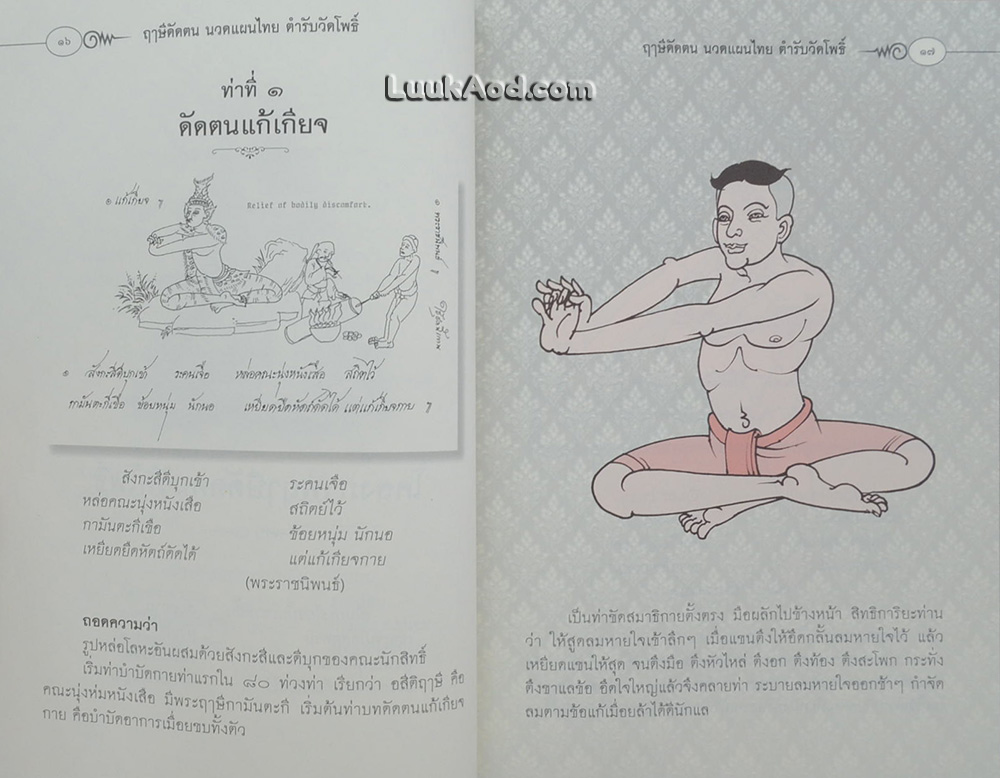 ๑๖
ฤๅษีดัดตน นวดแผนไทย ตำรับวัดโพธิ์
ท่าที่ ๑
ดัดตนแก้เกียจ
๑ แก้เกียจ ฯ
Relief of bodily discomfort.
๑ พระราชนิพนธ์ ฯ
๑ สังกะสีดีบุกเข้า ระคนเจือ หล่อคณะนุ่งหนังเสือ สถิตไว้
กามันตะกีเชื่อ ช้อยหนุ่ม นักนอ เหยียดยึดหัตถ์ดัดได้ แต่แก้เกียจกาย ฯ
สังกะสีดีบุกเข้า ระคนเจือ
หล่อคณะนุ่งหนังเสือ สถิตย์ไว้
กามันตะกีเชื่อ ช้อยหนุ่ม นักนอ
เหยียดยึดหัตถ์ดัดได้ แต่แก้เกียจกาย
(พระราชนิพนธ์)
ถอดความว่า
รูปหล่อโลหะอันผสมด้วยสังกะสีและดีบุกของคณะนักสิทธิ์
เริ่มท่าบำบัดกายท่าแรกใน ๘๐ ท่วงท่า เรียกว่า อสีติฤๅษี คือ
คณะนุ่งห่มหนังเสือ มีพระฤๅษีกามันตะกี เริ่มต้นท่าบทดัดตนแก้เกียจ
กาย คือบำบัดอาการเมื่อยขบทั้งตัว
LuukAod.com
ฤๅษีดัดตน นวดแผนไทย ตำรับวัดโพธิ์
๑๗
เป็นท่าขัดสมาธิกายตั้งตรง มือผลักไปข้างหน้า สิทธิการิยะท่าน
ว่า ให้สูดลมหายใจเข้าลึกๆ เมื่อแขนตึงให้อึดกลั้นลมหายใจไว้ แล้ว
เหยียดแขนให้สุด จนตึงมือ ตึงหัวไหล่ ตึงอก ตึงท้อง ตึงสะโพก กระทั่ง
ตึงขาแลข้อ อึดใจใหญ่แล้วจึงคลายท่า ระบายลมหายใจออกช้าๆ กำจัด
ลมตามข้อแก้เมื่อยล้าได้ดีนักแล